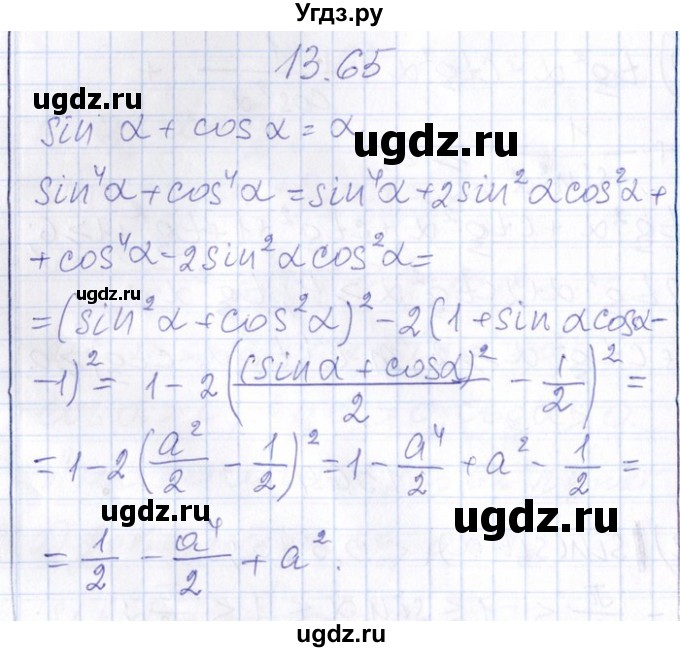 Угдз.ру
13.65
ugdz.ru
sin α + cos α = α
ugdz.ru
sin⁴α + cos⁴α = sin⁴α + 2sin²α cos²α +
+ cos⁴α - 2sin²α cos²α =
ugdz.ru
= (sin²α + cos²α)² - 2(1 + sin α cos α -
- 1)² = 1 - 2((sin α + cos α)²/2 - 1/2)² =
= 1 - 2(a²/2 - 1/2)² = 1 - a⁴/2 + a² - 1/2 =
ugdz.ru
= 1/2 - a⁴/2 + a².
ugdz.ru
ugdz.ru